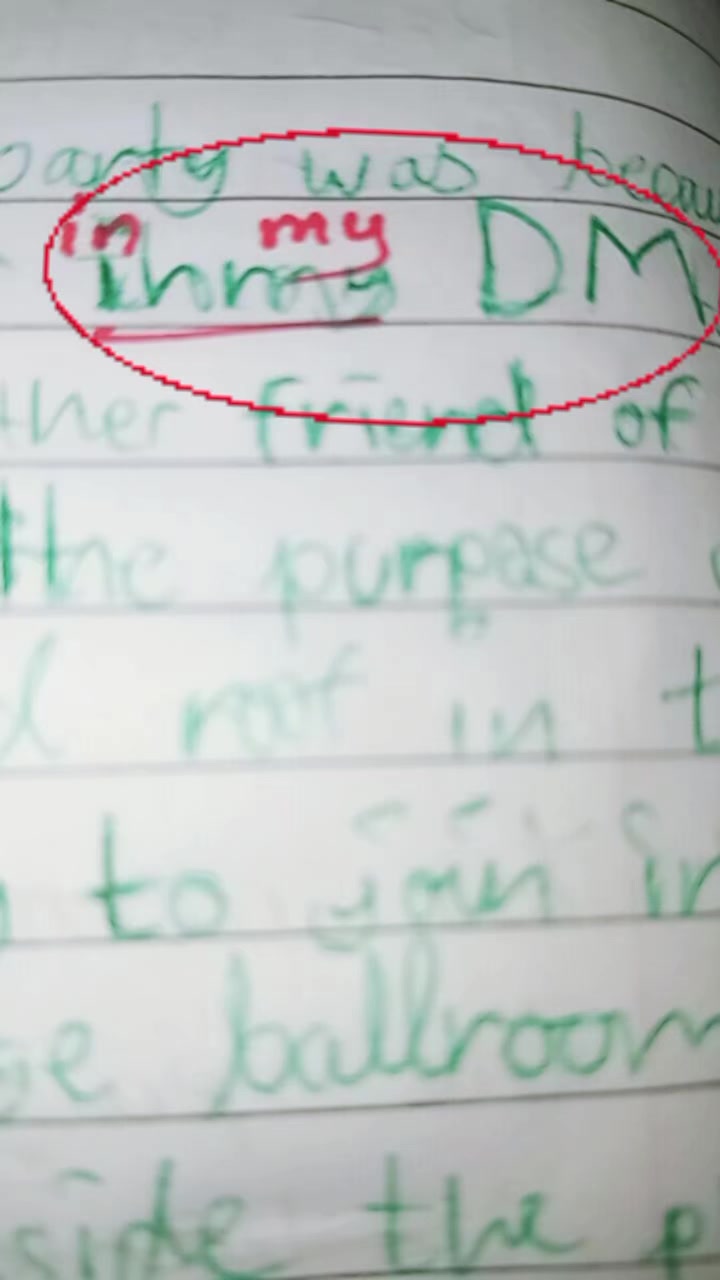 party was becau
in my
DM
ther friend of
the purpose
in t
to join in
se ballroom
side the p